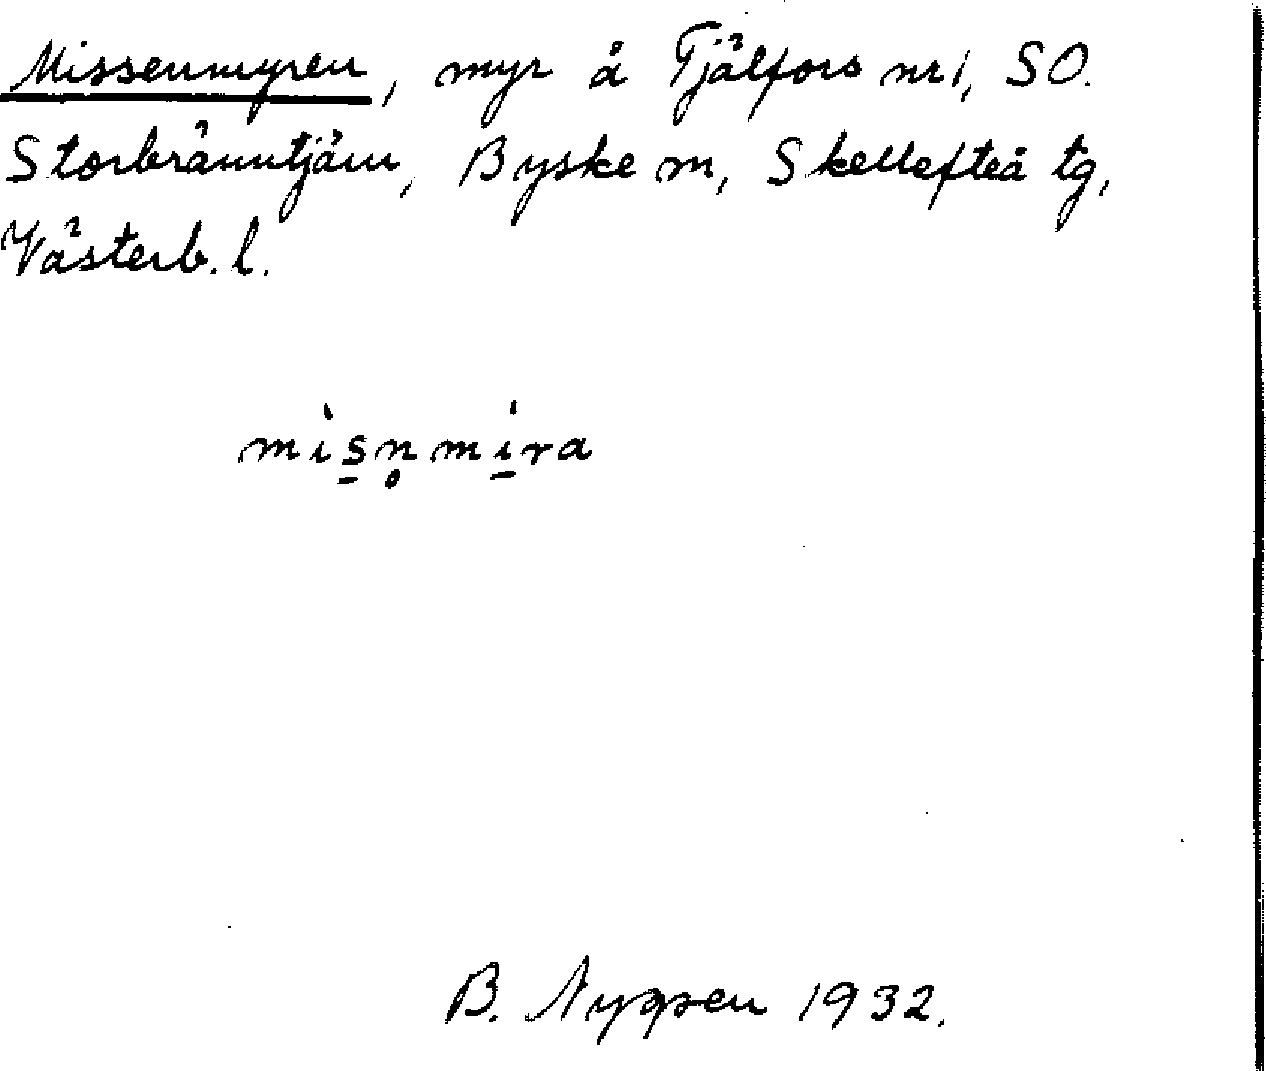 Missenmyren, myr å Tjälfors nr 1, SO.
Storbränntjärn, Byske m, Skellefteå tg,
Västerb. l.
mis̱n̥mi̱ra
B. Nyppen 1932.